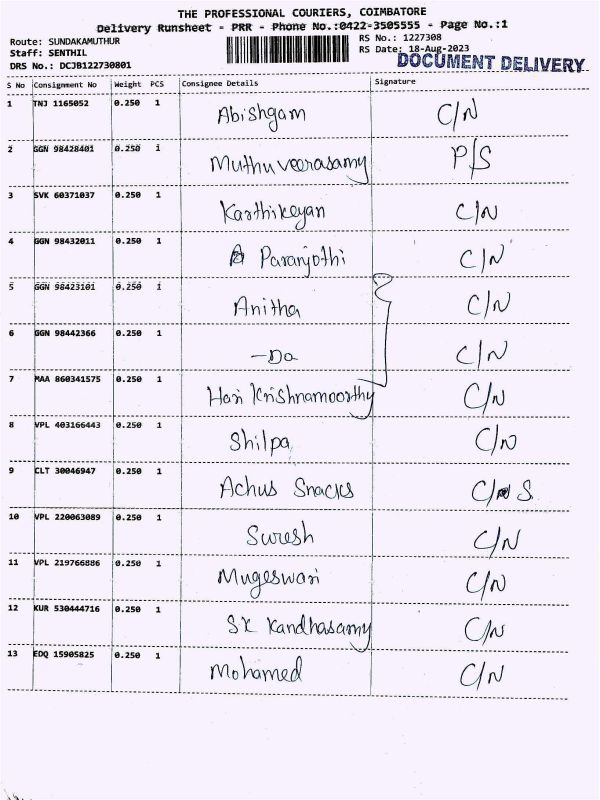 THE PROFESSIONAL COURIERS, COIMBATORE
Delivery Runsheet - PRR - Phone No.:0422-3505555 - Page No.:1
Route: SUNDAKAMUTHUR RS No.: 1227308
Staff: SENTHIL RS Date: 18-Aug-2023
DRS No.: DCJB122730801 DOCUMENT DELIVERY
S No Consignment No Weight PCS Consignee Details Signature
1 TNJ 1165052 0.250 1 Abishgam C/N
2 GGN 98428401 0.250 1 Muthuveerasamy P/S
3 SVK 60371037 0.250 1 Karthikeyan C/N
4 GGN 98432011 0.250 1 Paranjothi C/N
5 GGN 98423101 0.250 1 Anitha C/N
6 GGN 98442366 0.250 1 -Do C/N
7 MAA 860341575 0.250 1 Hari Krishnamoorthy C/N
8 VPL 403166443 0.250 1 Shilpa C/N
9 CLT 30046947 0.250 1 Achus Snacks C/ S
10 VPL 220063089 0.250 1 Suresh C/N
11 VPL 219766886 0.250 1 Mugeswari C/N
12 KUR 530444716 0.250 1 SK Kandhasamy C/N
13 EDQ 15905825 0.250 1 Mohamed C/N